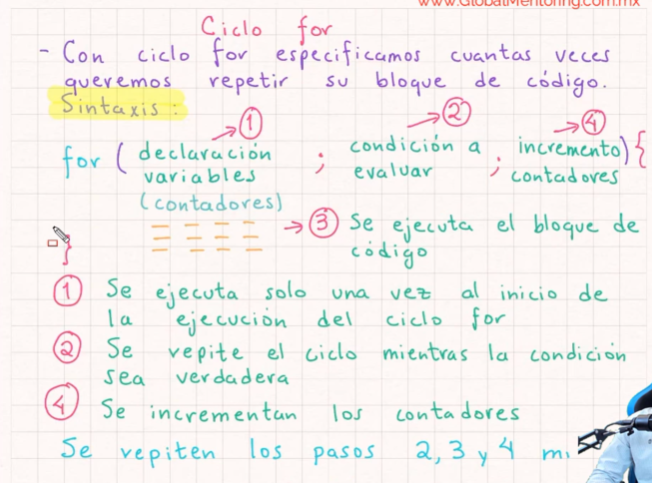 www.GlobalMentoring.com.mx
Ciclo for
- Con ciclo for especificamos cuantas veces
queremos repetir su bloque de código.
Sintaxis:
① ② ④
for ( declaración ; condición a ; incremento) {
variables evaluar contadores
(contadores)
③ Se ejecuta el bloque de
código
}
① Se ejecuta solo una vez al inicio de
la ejecución del ciclo for
② Se repite el ciclo mientras la condición
sea verdadera
④ Se incrementan los contadores
Se repiten los pasos 2, 3 y 4